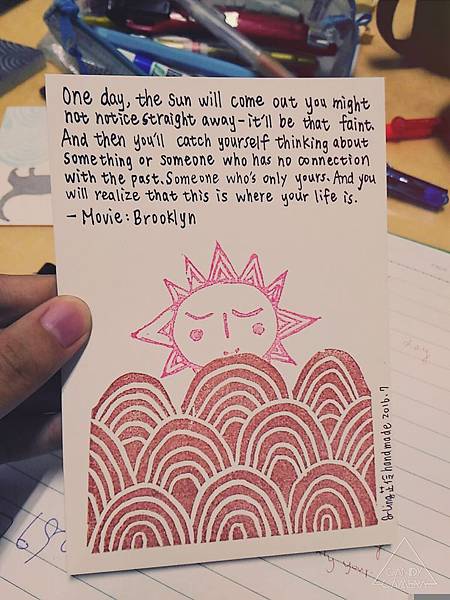 One day, the sun will come out you might
not notice straight away-it'll be that faint.
And then you'll catch yourself thinking about
something or someone who has no connection
with the past. Someone who's only yours. And you
will realize that this is where your life is.
- Movie: Brooklyn
handmade 2016.7
CANDY
CAMERA